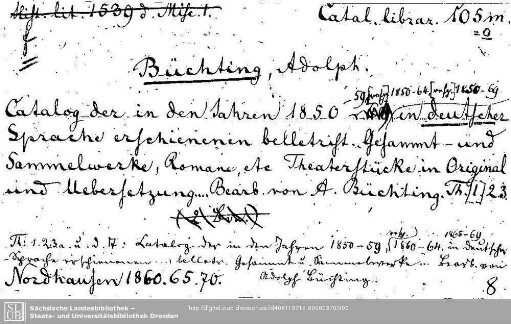 Hist. lit. 1539 d. Misc. 1.
Catal. librar. 105m.
=o
Büchting, Adolph.
59, 1850-64, 1850-69
Catalog der in den Jahren 1850 in deutscher
Sprache erschienenen belletrist. Gesammt- und
Sammelwerke, Romane, etc Theaterstücke in Original
und Uebersetzung.... Bearb. von A Büchting. Th. [1] 2.3.
1865-69
Th: 1.2.3 a. u. d. T: Catalog der in den Jahren 1850-59, (1860-64, in deutscher
Sprache erschienenen ... belletr. Gesammt u. Sammelwerke ... Bearb. von
Adolph Büchting.
Nordhausen 1860.65.70.
8
SLUB
Sächsische Landesbibliothek –
Staats- und Universitätsbibliothek Dresden